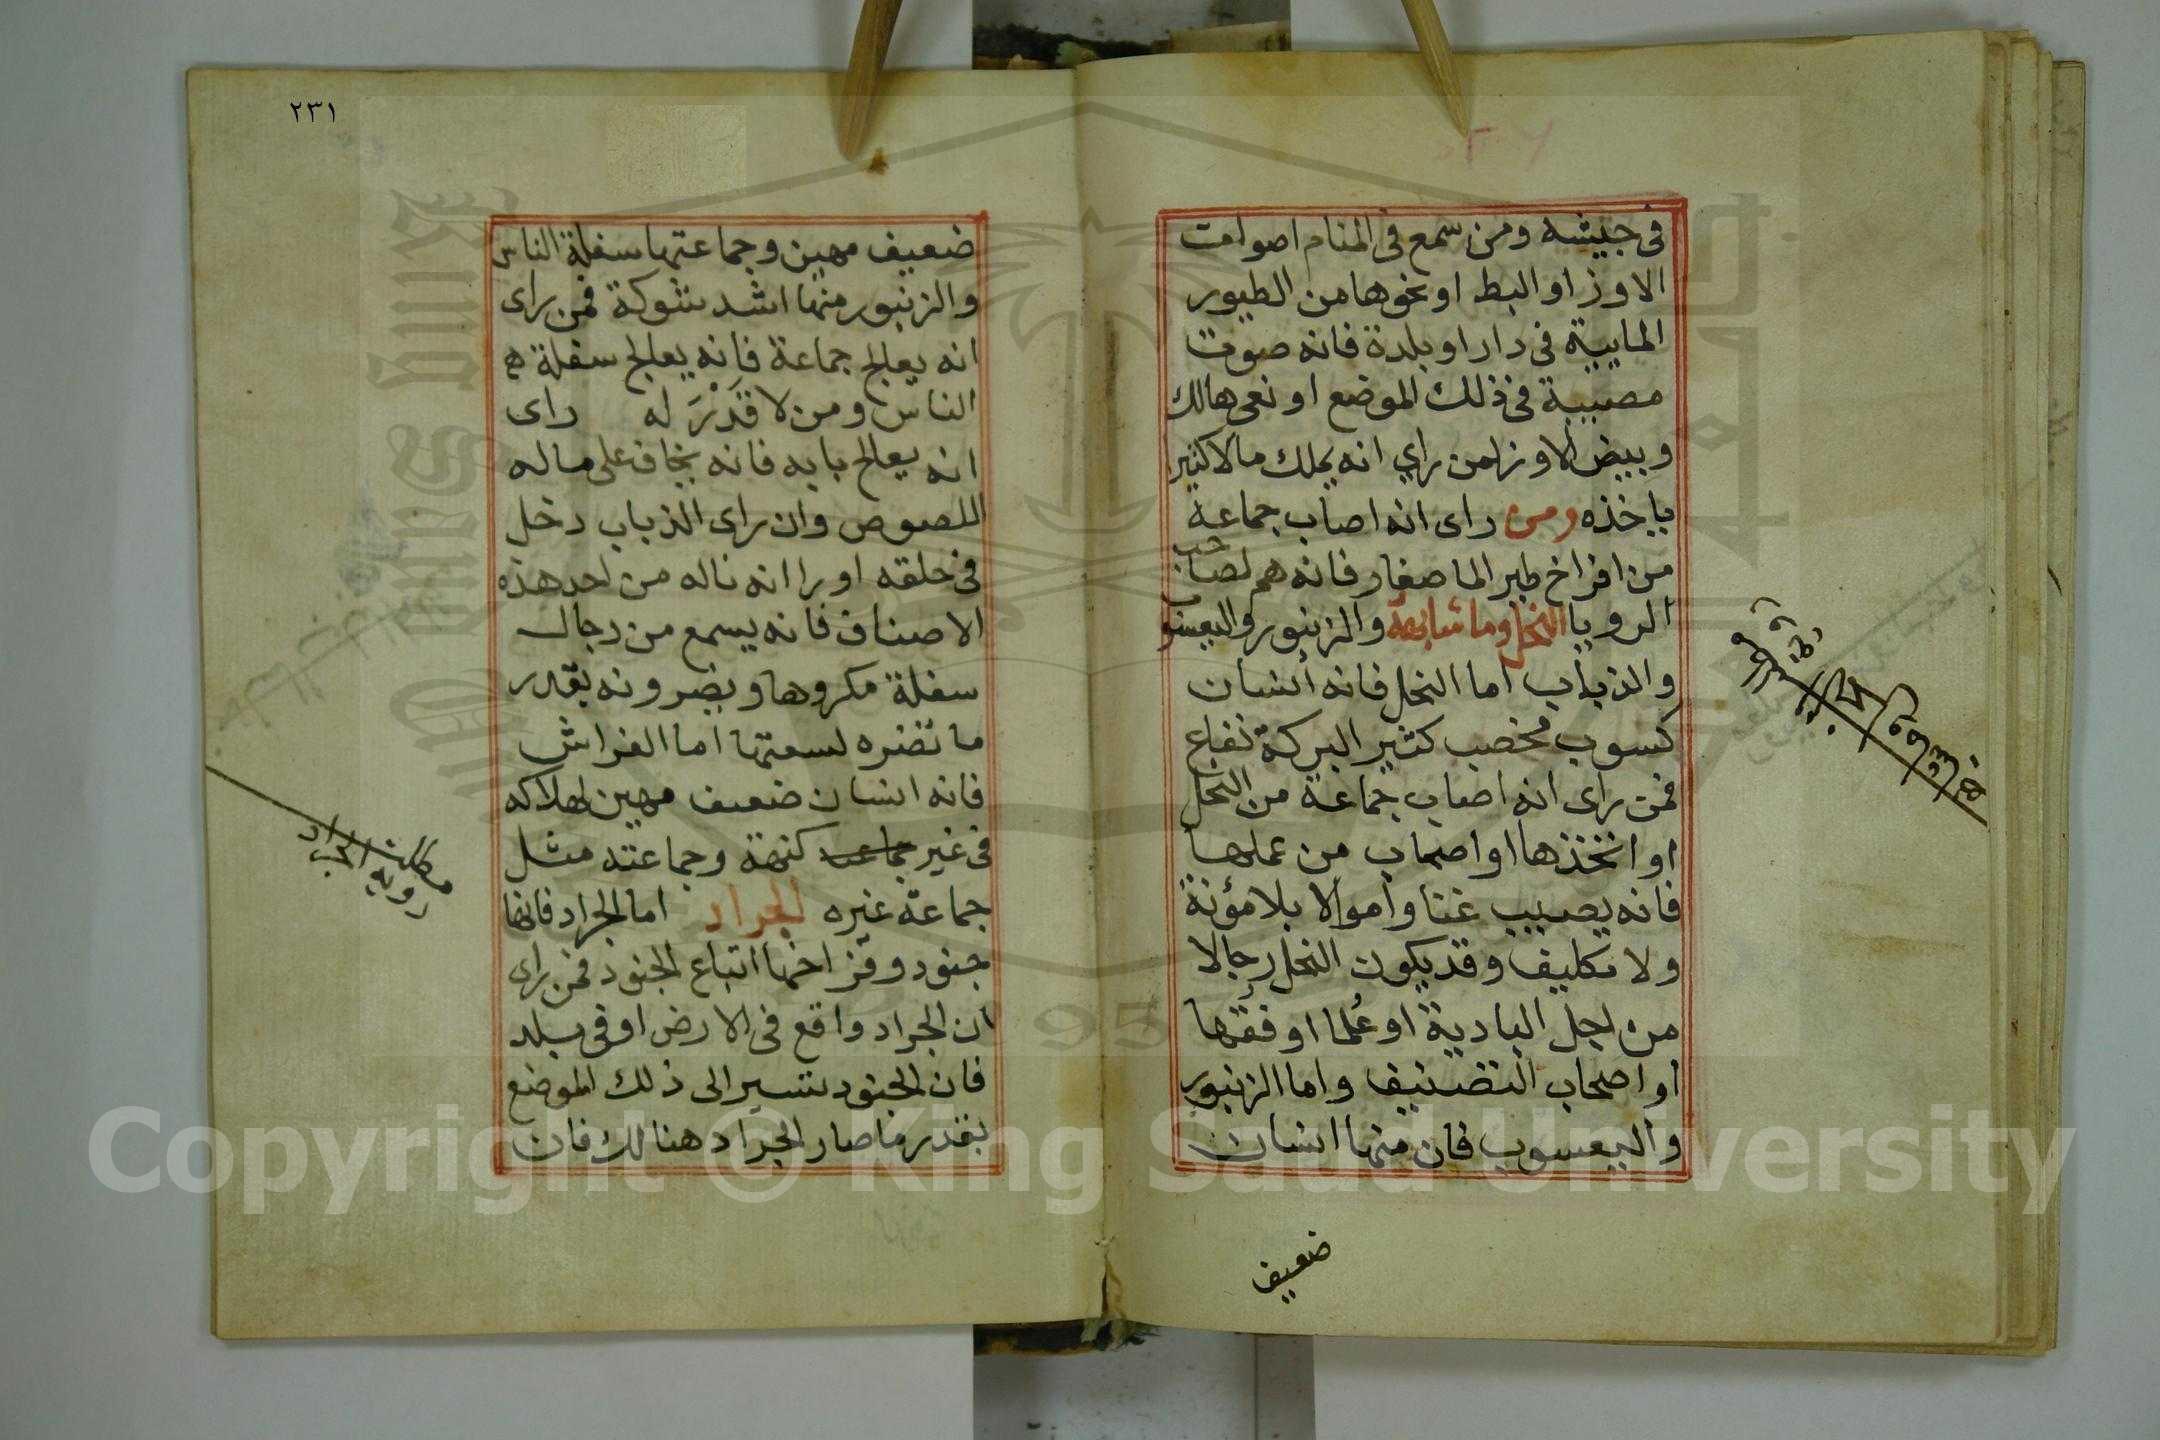 في جيشه ومن سمع في المنام اصوات
الاوز او البط او نحوها من الطيور
المايية في دار او بلدة فانه صوت
مصيبة في ذلك الموضع او نعي هالك
وبيض الاوز لمن راي انه يملك مالا كثير
ياخذه ومن راى انه اصاب جماعة
من افراخ طير الما صغار فانه هم لصاحب
الرويا النحل وما شابهه والزنبور واليعسوب
والذباب اما النحل فانه انسان
كسوب مخصب كثير البركة نفاع
فمن راى انه اصاب جماعة من النحل
او اتخذها او اصاب من عملها
فانه يصيب غنا واموالا بلا مؤنة
ولا تكليف وقد يكون النحل رجالا
من اجل البادية او عُلما او فقها
او اصحاب التصنيف واما الزنبور
واليعسوب فان منها انسان
ضعيف
٢٣١
ضعيف مهين وجماعتها سفلة الناس
والزنبور منها اشد شوكة فمن راى
انه يعالج جماعة فانه يعالج سفلة
الناس ومن لا قَدْرَ له راى
انه يعالج بابه فانه يخاف على ماله
اللصوص وان راى الذباب دخل
في حلقه او را انه ناله من احد هذه
الاصناف فانه يسمع من رجال
سفلة مكروها ويضرونه بقدر
ما تضره لسعتها اما الفراش
فانه انسان ضعيف مهين لهلاكه
في غير جماعته كنهة وجماعته مثل
جماعة غيره الجراد اما الجراد فانها
جنود وفراخها اتباع الجنود فمن راى
ان الجراد واقع في الارض او في بلد
فان الجنود تسير الى ذلك الموضع
بقدر ما صار الجراد هنالك فان
مكان
روية الجراد
Copyright © King Saud University